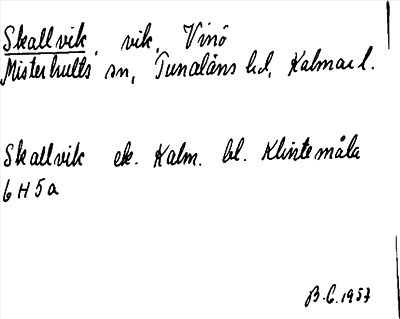 Skallvik vik, Vinö
Misterhults sn, Tunaläns hd, Kalmar l.
Skallvik ek. Kalm. bl. Klintemåla
6 H 5 a
B.C. 1957